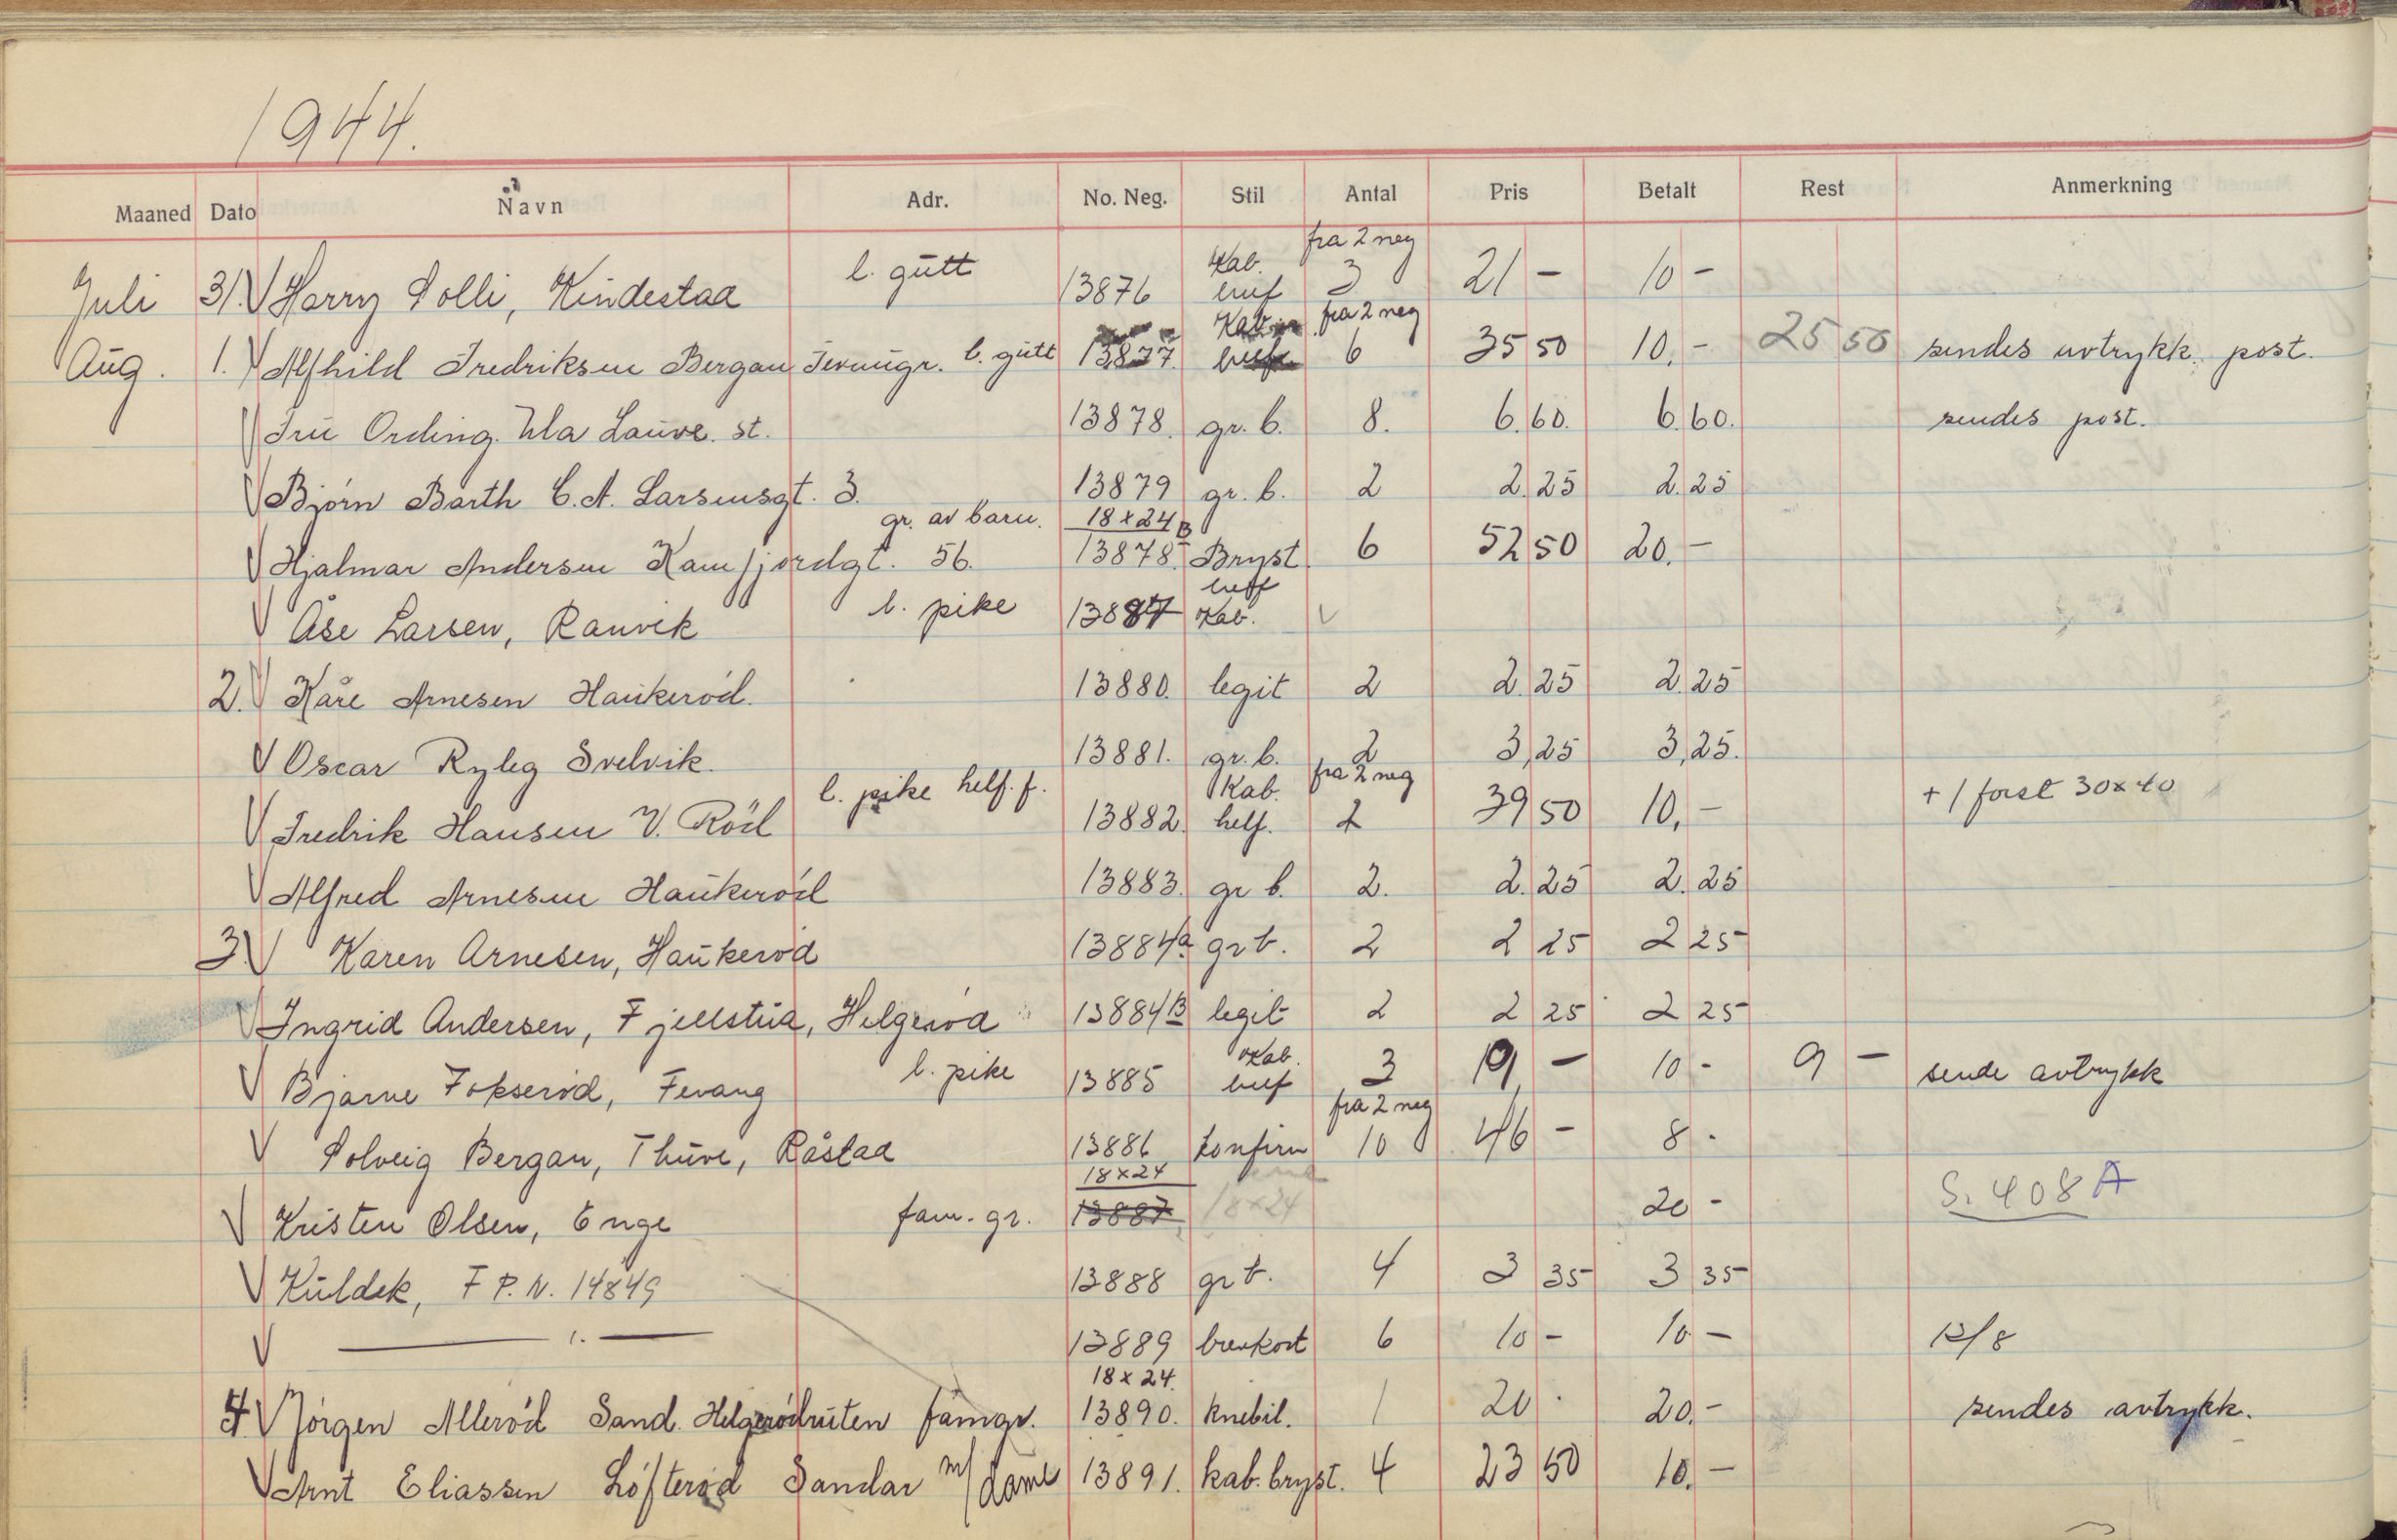 1944.
Maaned Dato Navn Adr. No. Neg. Stil Antal Pris Betalt Rest Anmerkning
Juli 31. V Harry Solli, Kindestad l. gutt 13876 Kab. fra 2 neg 3 21 - 10 -
Aug. 1. V Alfhild Fredriksen Bergan l. gutt 13877. Kab. fra 2 neg 6 35 50 10. - 25 50 sendes avtrykk. post.
V Fru Ording. Ula Lauve. st. 13878. gr. b. 8. 6. 60. 6. 60. sendes post.
V Bjørn Barth C. A. Larsensgt. 3. 13879 gr. b. 2 2. 25 2. 25
V Hjalmar Andersen Kamfjordgt. 56. gr. av barn. 18 x 24 13878 B Bryst 6 52 50 20. -
V Åse Larsen, Ranvik l. pike Kab. V
2. V Kåre Arnesen Haukerød. 13880. legit 2 2. 25 2. 25
V Oscar Ryleg Svelvik. 13881. gr. b. 2 3,25 3,25.
V Fredrik Hansen V. Röd l. pike helf. f. 13882. Kab. helf. fra 2 neg 2 39 50 10, - + 1 forst 30 x 40
V Alfred Arnesen Haukerød 13883. gr b. 2. 2. 25 2. 25
3. V Karen Arnesen, Haukerød 13884a gr b. 2 2 25 2 25
V Ingrid Andersen, Fjellstua, Helgerød 13884B legit 2 2 25 2 25
V Bjarne Fokserød, Fevang l. pike 13885 Kab. 3 19 - 10 - 9 - sende avtrykk
V Solveig Bergan, Thuve, Råstad 13886 konfirm fra 2 neg 10 46 - 8 -
V Kristen Olsen, Enge fam. gr. 18 x 24 13887 18x24 20 - S. 408 A
V Kuldek, F P. N. 14849 13888 gr b. 4 3 35 3 35
V — " — 13889 brevkort 6 10 - 10 - 12/8
4. V Jörgen Allerød Sand. Helgerødruten famgr. 18 x 24. 13890. knebil. 1 20 - 20. - sendes avtrykk.
V Arnt Eliassen Løfterød Sandar m/ dame 13891. kab. bryst. 4 23 50 10. -